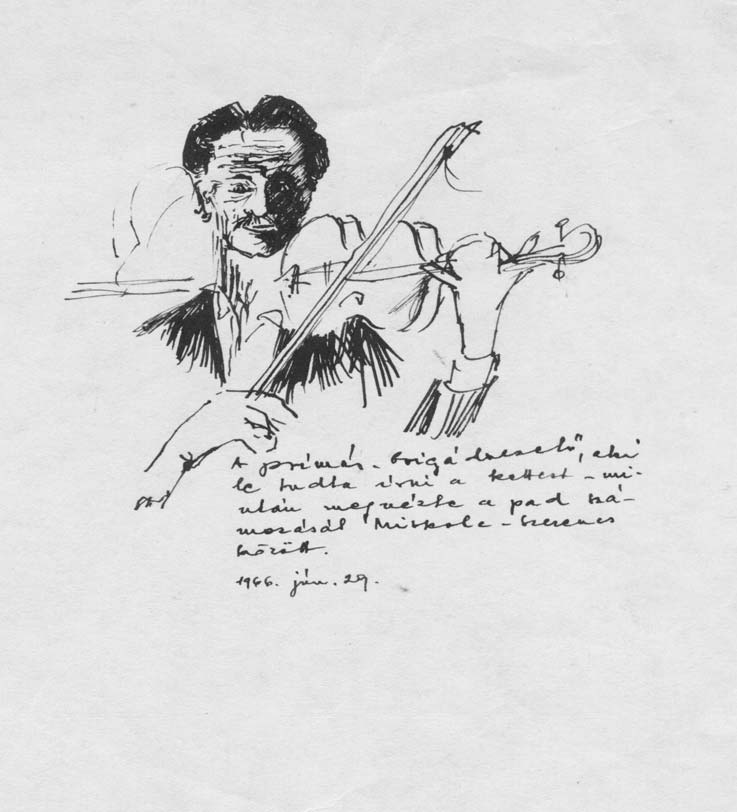 A prímás-brigádvezető, aki
le tudta írni a kettest - mi-
után megnézte a pad szá-
mozását Miskolc - Szerencs
között.
1966. jún. 29.